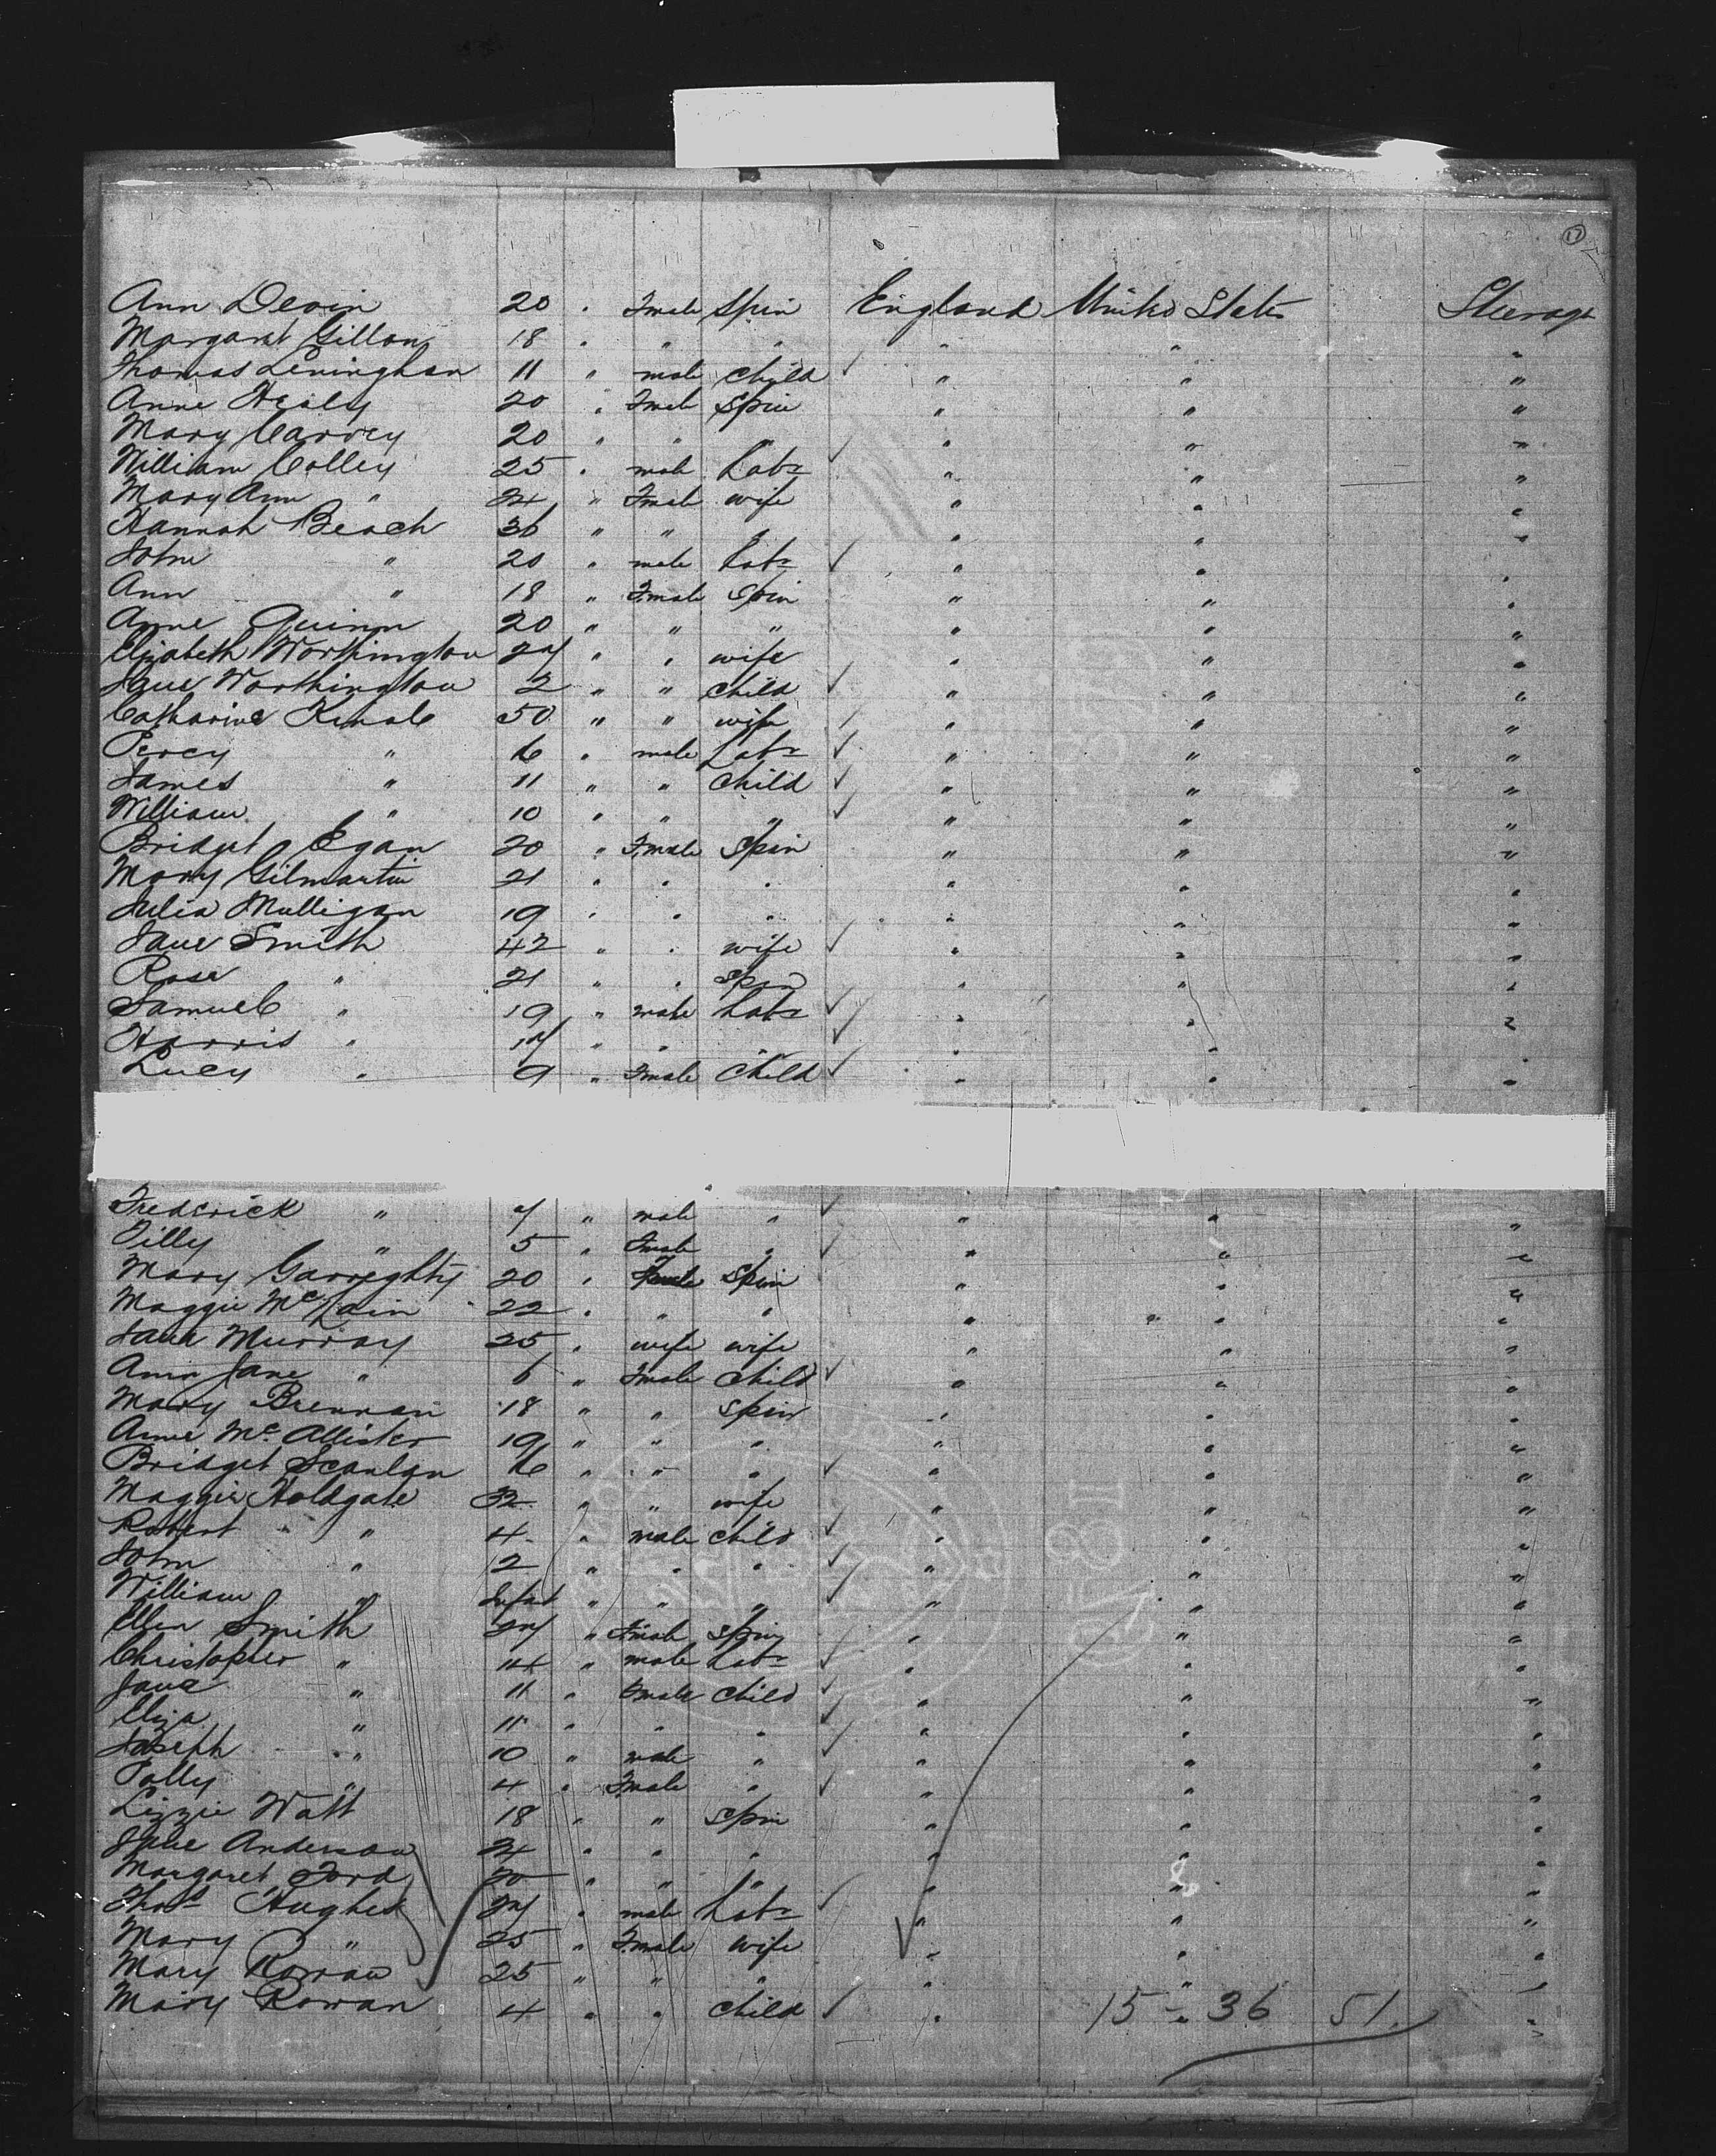 17
Ann Devin 20 " Female Spin England United States Steerage
Margaret Gillon 18 " " " " " "
Thomas Leninghan 11 " male child " " "
Anne Healy 20 " Female Spin " " "
Mary Carvey 20 " " " " " "
William Colley 25 " male Labr " " "
Mary Ann " 24 " Female wife " " "
Hannah Beach 36 " " " " " "
John " 20 " male Labr " " "
Ann " 18 " Female Spin " " "
Anne Quinn 20 " " " " " "
Elizabeth Worthington 27 " " wife " " "
Jane Worthington 2 " " child " " "
Catharine 50 " " wife " " "
Percy " 16 " male Labr " " "
James " 11 " " child " " "
William " 10 " " " " " "
Bridget Egan 20 " Female Spin " " "
Mary Gilmartin 21 " " " " " "
Julia Mulligan 19 " " " " " "
Jane Smith 42 " " wife " " "
Rose " 21 " " Spin " " "
Samuel " 19 " male Labr " " "
Harris " 17 " " " " " "
Lucy " 9 " Female child " " "
Frederick " 7 " male " " " "
Tilly " 5 " Female " " " "
Mary Garreghty 20 " Female Spin " " "
Maggie McLain 22 " " " " " "
Jane Murray 25 " wife wife " " "
Ann Jane " 6 " Female child " " "
Mary Brennan 18 " " Spin " " "
Annie McAllister 19 " " " " " "
Bridget Scanlan 16 " " " " " "
Maggie Holdgate 32 " " wife " " "
Robert " 4 " male child " " "
John " 2 " " " " " "
William " Infant " " " " " "
Ellen Smith 27 " Female Spin " " "
Christopher " 14 " male Labr " " "
Jane " 11 " Female child " " "
Eliza " 11 " " " " " "
Joseph " 10 " male " " " "
Polly " 4 " Female " " " "
Lizzie Watt 18 " " Spin " " "
Jane Anderson 24 " " " " " "
Margaret Ford 20 " " " " " "
Thos Hughes 27 " male Labr " " "
Mary " 25 " Female wife " " "
Mary Rowan 25 " " " " " "
Mary Rowan 4 " " child " " "
15 - 36 51